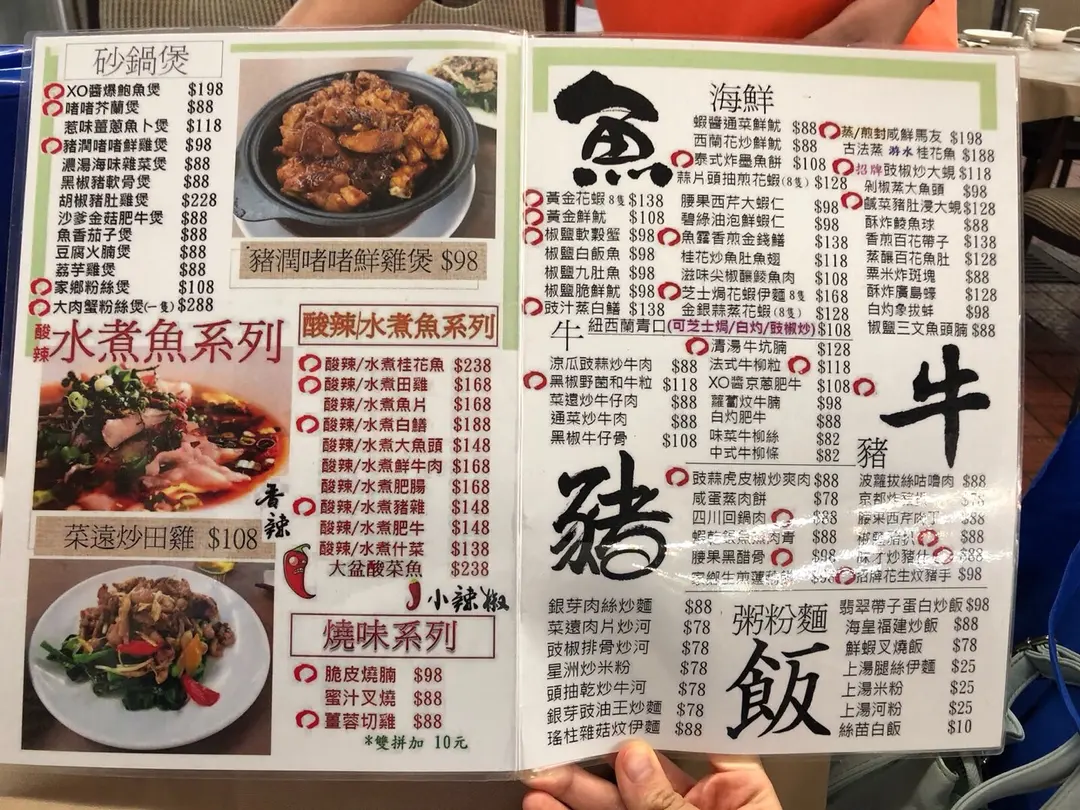 砂鍋煲
XO醬爆鮑魚煲 $198
啫啫芥蘭煲 $88
惹味薑蔥魚卜煲 $118
豬潤啫啫鮮雞煲 $98
濃湯海味雜菜煲 $88
黑椒豬軟骨煲 $88
胡椒豬肚雞煲 $228
沙爹金菇肥牛煲 $88
魚香茄子煲 $88
豆腐火腩煲 $88
荔芋雞煲 $88
家鄉粉絲煲 $108
大肉蟹粉絲煲(一隻) $288
豬潤啫啫鮮雞煲 $98
酸辣 水煮魚系列
香辣
菜遠炒田雞 $108
酸辣/水煮魚系列
酸辣/水煮桂花魚 $238
酸辣/水煮田雞 $168
酸辣/水煮魚片 $168
酸辣/水煮白鱔 $188
酸辣/水煮大魚頭 $148
酸辣/水煮鮮牛肉 $168
酸辣/水煮肥腸 $168
酸辣/水煮豬雜 $148
酸辣/水煮肥牛 $148
酸辣/水煮什菜 $138
大盆酸菜魚 $238
小辣椒
燒味系列
脆皮燒腩 $98
蜜汁叉燒 $88
薑蓉切雞 $88
*雙拼加 10元
魚
海鮮
蝦醬通菜鮮魷 $88
西蘭花炒鮮魷 $88
泰式炸墨魚餅 $108
蒜片頭抽煎花蝦(8隻) $128
黃金花蝦 8隻 $138
黃金鮮魷 $108
椒鹽軟殼蟹 $98
椒鹽白飯魚 $98
椒鹽九肚魚 $98
椒鹽脆鮮魷 $98
豉汁蒸白鱔 $138
腰果西芹大蝦仁 $98
碧綠油泡鮮蝦仁 $98
魚露香煎金錢鱔 $138
桂花炒魚肚魚翅 $118
滋味尖椒釀鯪魚肉 $108
芝士焗花蝦伊麵 8隻 $168
金銀蒜蒸花蝦(8隻) $128
紐西蘭青口(可芝士焗/白灼/豉椒炒) $108
蒸/煎封咸鮮馬友 $198
古法蒸 游水 桂花魚 $188
招牌豉椒炒大蜆 $118
剁椒蒸大魚頭 $98
鹹菜豬肚浸大蜆 $128
酥炸鯪魚球 $88
香煎百花帶子 $138
蒸釀百花魚肚 $128
粟米炸斑塊 $88
酥炸廣島蠔 $128
白灼象拔蚌 $98
椒鹽三文魚頭腩 $88
牛
涼瓜豉蒜炒牛肉 $88
黑椒野菌和牛粒 $118
菜遠炒牛仔肉 $88
通菜炒牛肉 $88
黑椒牛仔骨 $108
清湯牛坑腩 $128
法式牛柳粒 $118
XO醬京蔥肥牛 $108
蘿蔔炆牛腩 $98
白灼肥牛 $88
味菜牛柳絲 $82
中式牛柳條 $82
牛
豬
豬
豉蒜虎皮椒炒爽肉 $88
咸蛋蒸肉餅 $78
四川回鍋肉 $88
$88
腰果黑醋骨 $98
波蘿拔絲咕嚕肉 $88
$78
腰果西芹肉丁 $88
$88
$88
招牌花生炆豬手 $98
粥粉麵
飯
銀芽肉絲炒麵 $88
菜遠肉片炒河 $78
豉椒排骨炒河 $78
星洲炒米粉 $78
頭抽乾炒牛河 $78
銀芽豉油王炒麵 $78
瑤柱雜菇炆伊麵 $88
翡翠帶子蛋白炒飯 $98
海皇福建炒飯 $88
鮮蝦叉燒飯 $78
上湯腿絲伊麵 $25
上湯米粉 $25
上湯河粉 $25
絲苗白飯 $10